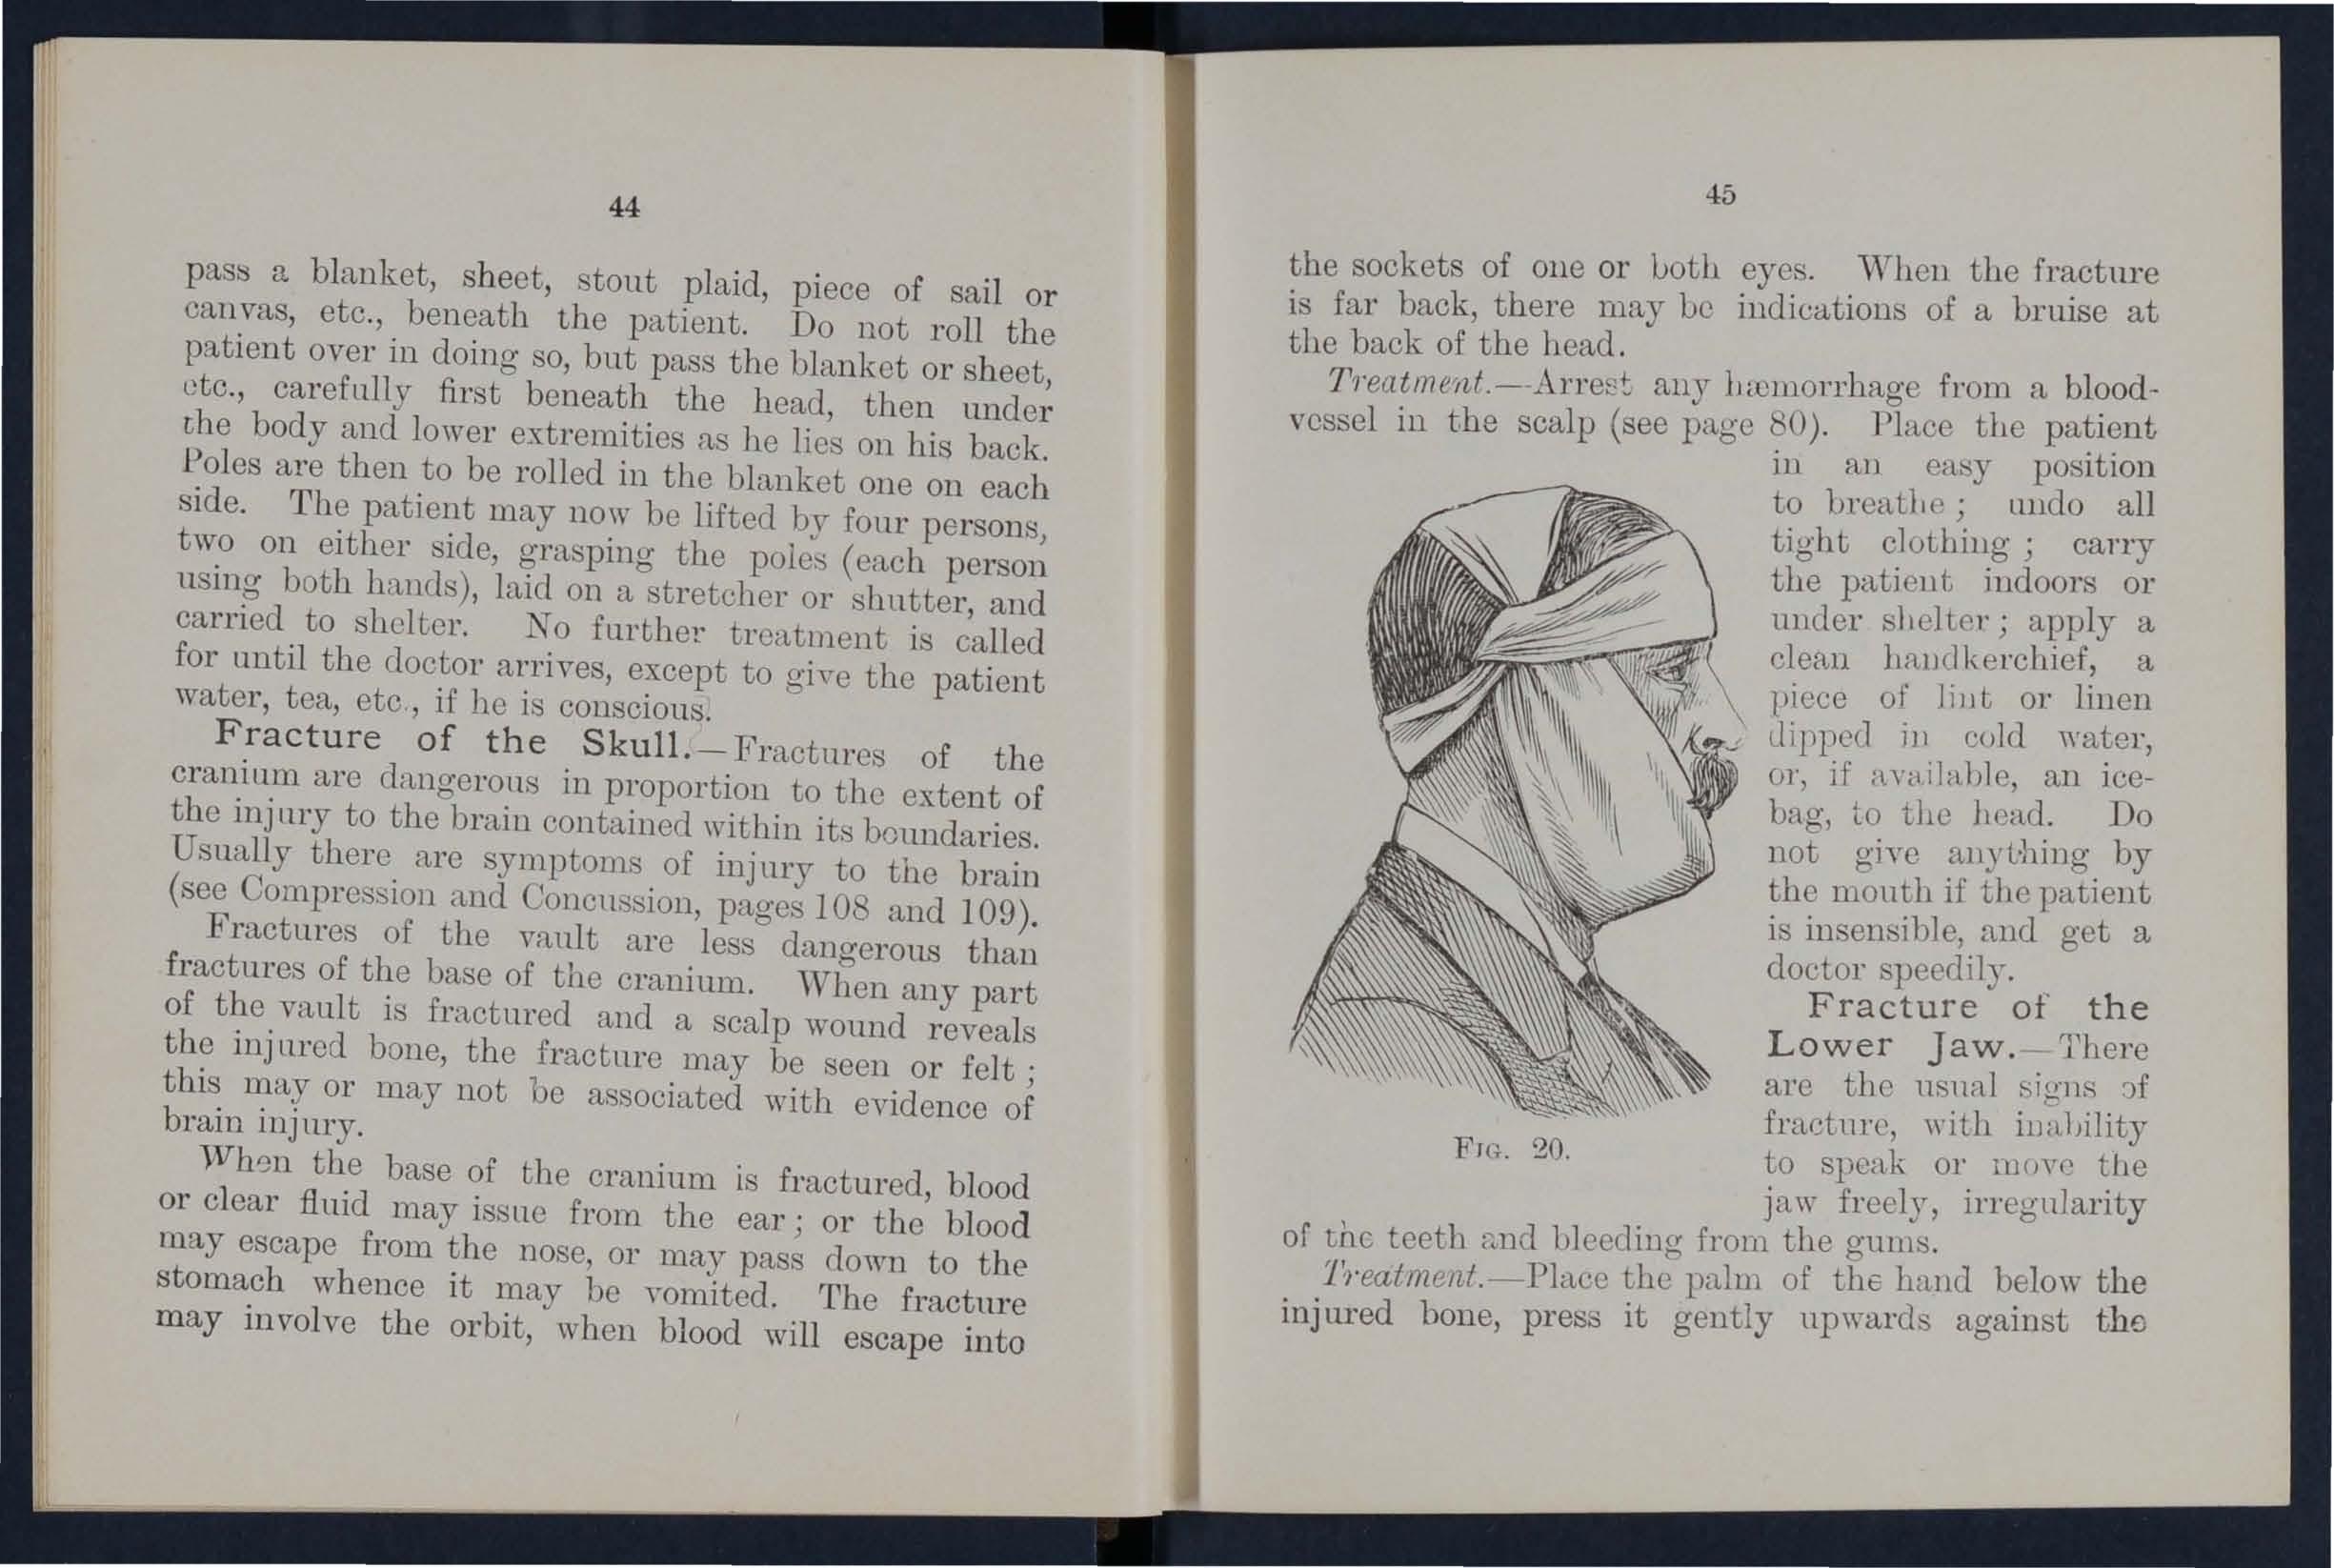 44
pass a blanket, sheet, stout plaid, piece of sail or
canvas, etc., beneath the patient. Do not roll the
patient over in doing so, but pass the blanket or sheet,
etc., carefully first beneath the head, then under
the body and lower extremities as he lies on his back.
Poles are then to be rolled in the blanket one on each
side. The patient may now be lifted by four persons,
two on either side, grasping the poles (each person
using both hands), laid on a stretcher or shutter, and
carried to shelter. No further treatment is called
for until the doctor arrives, except to give the patient
water, tea, etc., if he is conscious.
Fracture of the Skull.—Fractures of the
cranium are dangerous in proportion to the extent of
the injury to the brain contained within its boundaries.
Usually there are symptoms of injury to the brain
(see Compression and Concussion, pages 108 and 109).
Fractures of the vault are less dangerous than
fractures of the base of the cranium. When any part
of the vault is fractured and a scalp wound reveals
the injured bone, the fracture may be seen or felt ;
this may or may not be associated with evidence of
brain injury.
When the base of the cranium is fractured, blood
or clear fluid may issue from the ear ; or the blood
may escape from the nose, or may pass down to the
stomach whence it may be vomited. The fracture
may involve the orbit, when blood will escape into
45
the sockets of one or both eyes. When the fracture
is far back, there may be indications of a bruise at
the back of the head.
Treatment.—Arrest any hæmorrhage from a blood-
vessel in the scalp (see page 80). Place the patient
in an easy position
to breathe ; undo all
tight clothing ; carry
the patient indoors or
under shelter ; apply a
clean handkerchief, a
piece of lint or linen
dipped in cold water,
or, if available, an ice-
bag, to the head. Do
not give anything by
the mouth if the patient
is insensible, and get a
doctor speedily.
Fracture of the
Lower Jaw.—There
are the usual signs of
fracture, with inability
to speak or move the
jaw freely, irregularity
FIG. 20.
of the teeth and bleeding from the gums.
Treatment.—Place the palm of the hand below the
injured bone, press it gently upwards against the